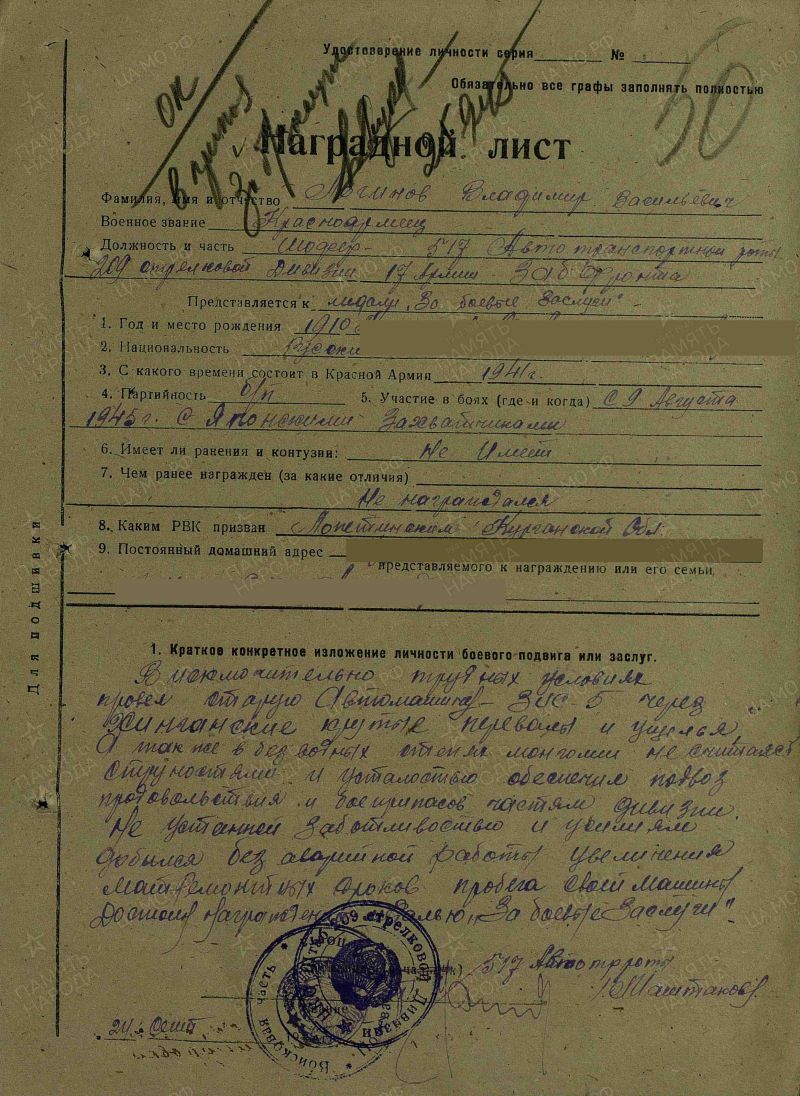 Удостоверение личности серия № 
Обязательно все графы заполнять полностью
50
Наградной лист
Фамилия, имя и отчество Логинов Владимир Васильевич
Военное звание Красноармеец
Должность и часть Шофер - 517 Автотранспортной роты
209 стрелковой Дивизии 17 Армии - Заб Фронта
Представляется к медали „За боевые Заслуги" -
1. Год и место рождения 1910
2. Национальность Русский
3. С какого времени состоит в Красной Армии 1941г.
4. Партийность б/п 5. Участие в боях (где и когда) С 9 Августа
1945г. с Японскими Захватчиками
6. Имеет ли ранения и контузии: Не Имеет
7. Чем ранее награжден (за какие отличия)
Не награждался
8. Каким РВК призван Курганской Обл.
9. Постоянный домашний адрес
представляемого к награждению или его семьи
Для подшивки
1. Краткое конкретное изложение личности боевого подвига или заслуг.
В исключительно трудных условиях
провел старую Автомашину - ЗИС-5 через
Хинганские крутые перевалы и ущелья,
А так же в безводных степях монголии не считаясь
с трудностями и усталостью обеспечил подвоз
продовольствия и боеприпасов частям дивизии.
Не устанной Заботливостью и усилиям
добился без аварийной работы увеличения
сроков пробега своей машины
Достоин медалью „За боевые Заслуги".
517 Автотрроты
Войсковая часть
209 стрелковой